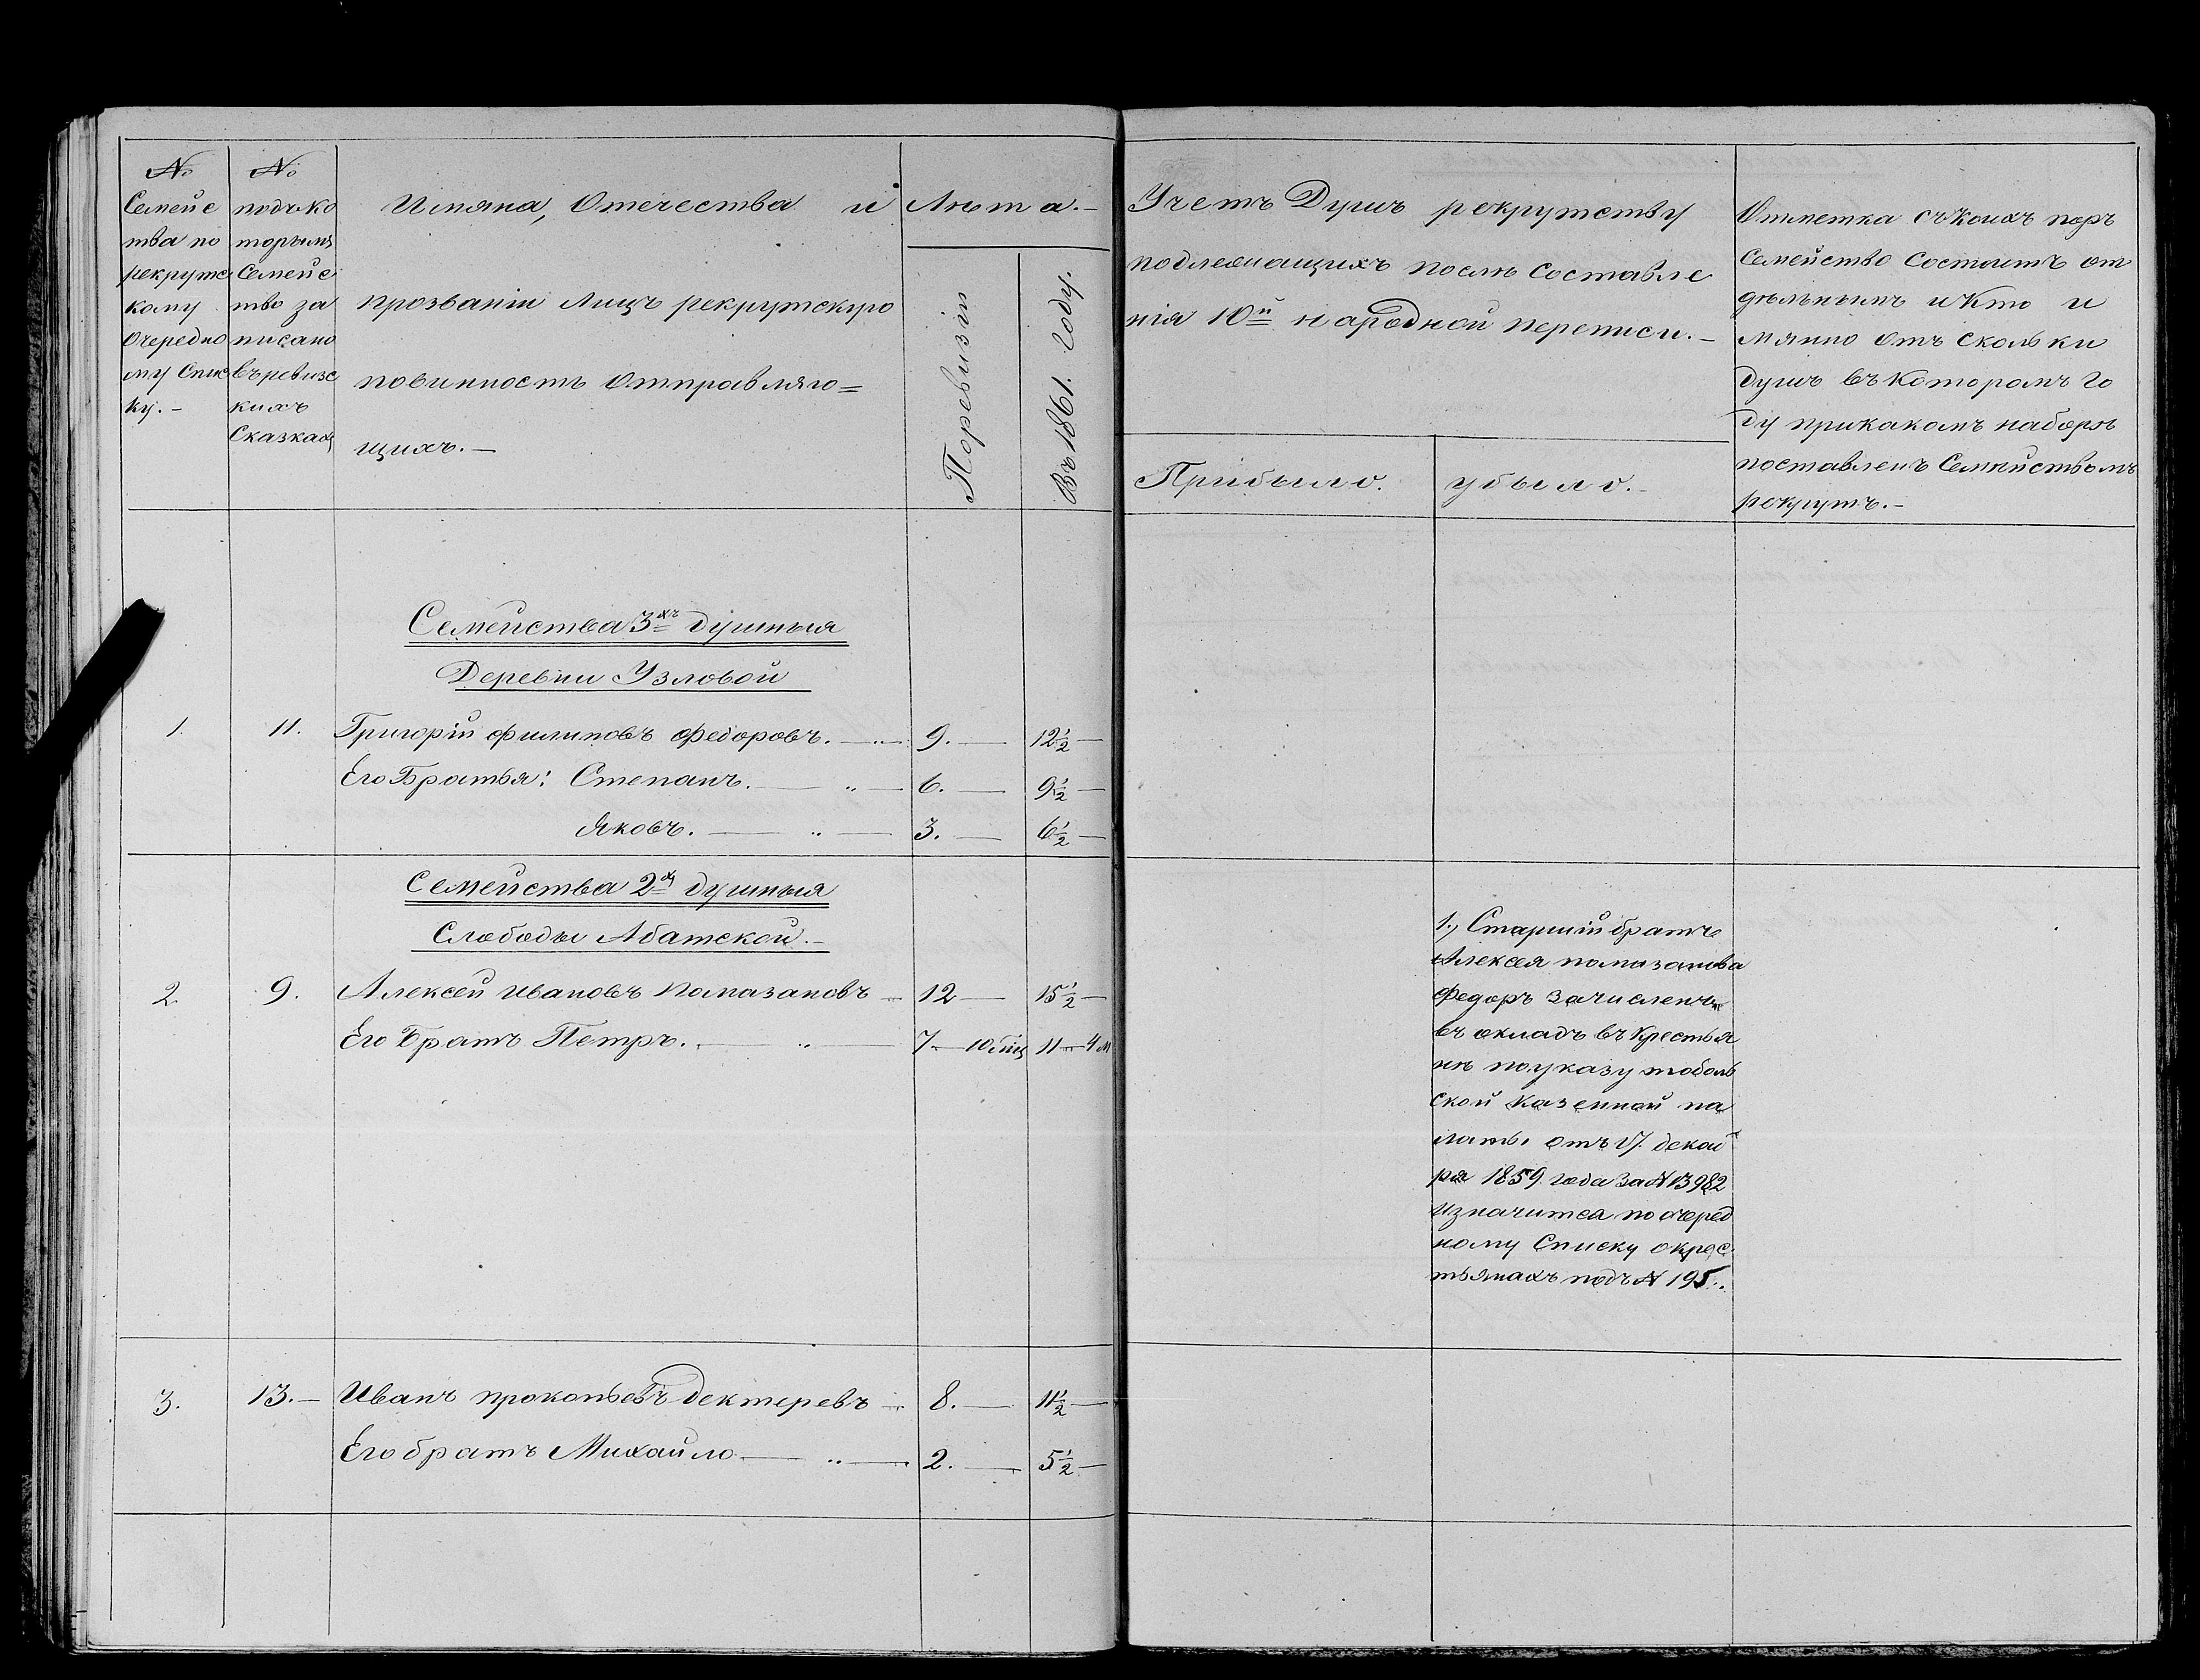 №
Семейс
тва по
рекрутс
кому
Очередно
му Спис
ку.-
№
подъ ко
торымъ
Семейс
тво за
писано
въ ревизс
кихъ
Сказкахъ
Имяна, Отечества и
прозваніи лицъ рекрутскую
повинность отправляю=
щихъ.-
Лѣта.-
По ревизіи
Въ 1861. Году.
Учетъ Душъ рекрутству
подлежащихъ послѣ составле
нія 10й народной переписи.-
Прибыло.
убыло.-
Отметка съ коихъ поръ
Семейство состоитъ от
дѣльнымъ и кто и
мянно отъ сколь ки
душъ въ которомъ го
ду при какомъ наборѣ
поставленъ Семѣйствомъ
рекрутъ.-
Семейства 3хъ душныя
Деревни Узловой
1. 11. Григорій Филиповъ Федоровъ. 9. 12½
Его Братья: Степанъ. 6. 9½
Яковъ. 3. 6½
Семейства 2хъ душныя
Слободы Абатской.-
2. 9. Алексей Ивановъ Помазановъ 12 15½
Его Братъ Петръ. 7 10 мц 11 4 м
1., Старшій братъ
Алексея помазанова
Федоръ зачисленъ
въ окладъ въ Крестья
не по указу тоболь
ской казенной па
латы отъ 17. декаб
ря 1859 года за № 13982
и значится по очеред
ному Списку о крес
тьянахъ подъ № 195..
3. 13.- Иванъ прокопьевъ дектеревъ 8. 11½
Его братъ Михайло 2. 5½